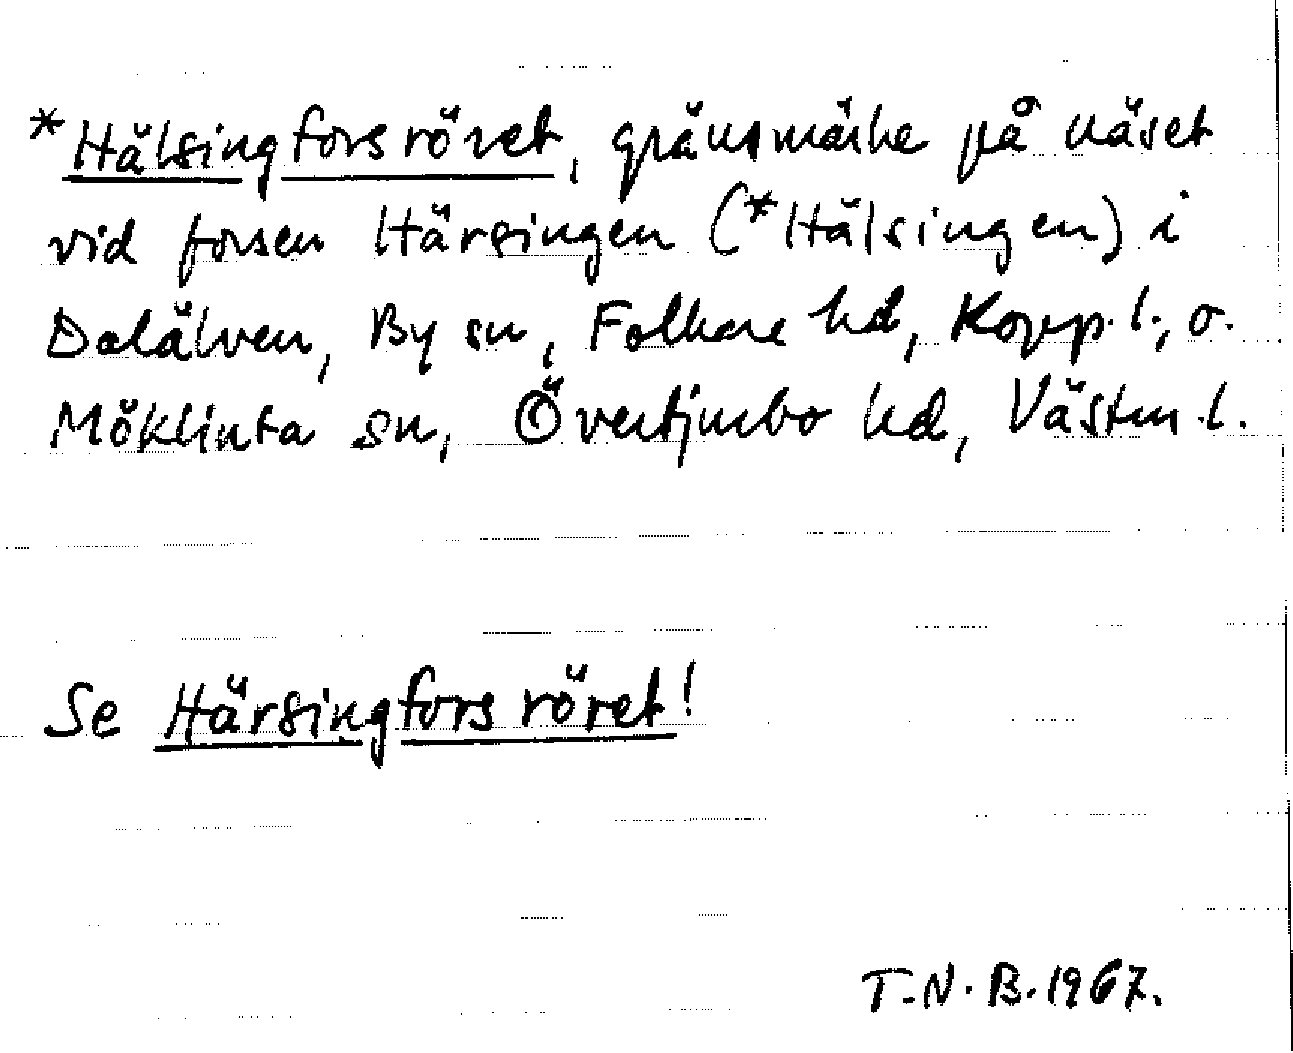 *Hälsingforsröret, gränsmärke på näset
vid forsen Härsingen (*Hälsingen) i
Dalälven, By sn, Folkare hd, Kopp. l., o.
Möklinta sn, Övertjurbo hd, Västm. l.
Se Härsingforsröret!
T.N.B. 1967.